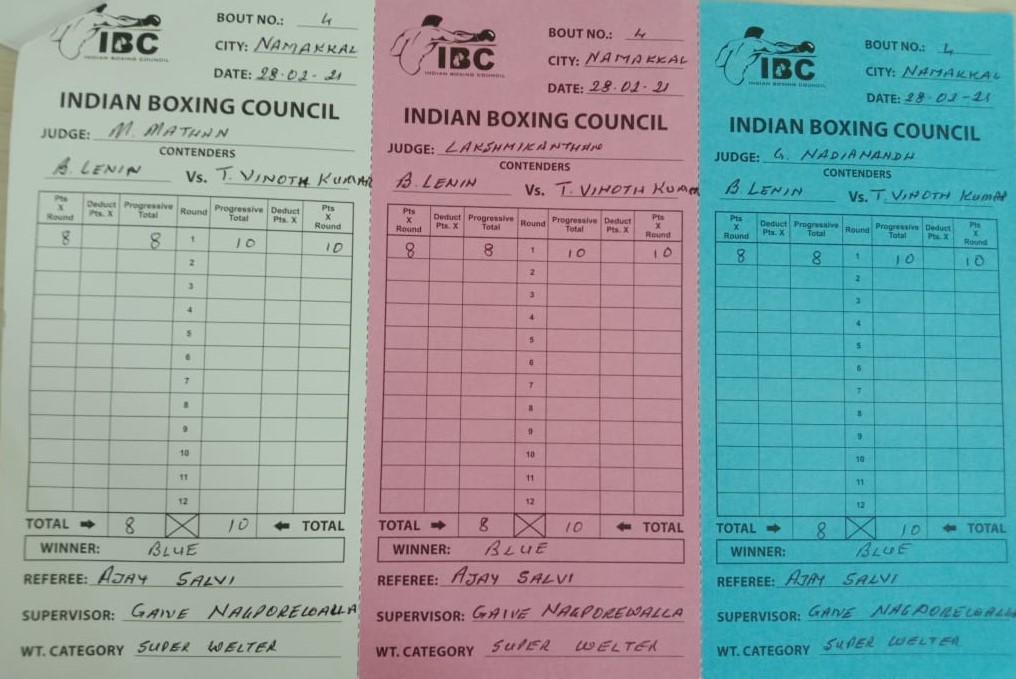 IBC
INDIAN BOXING COUNCIL
BOUT NO.: 4
CITY: NAMAKKAL
DATE: 28-02-21
INDIAN BOXING COUNCIL
JUDGE: M. MATHAN
CONTENDERS
B. LENIN Vs. T. VINOTH KUMAR
Pts X Round Deduct Pts. X Progressive Total Round Progressive Total Deduct Pts. X Pts X Round
8 8 1 10 10
2
3
4
5
6
7
8
9
10
11
12
TOTAL 8 10 TOTAL
WINNER: BLUE
REFEREE: AJAY SALVI
SUPERVISOR: GAIVE NAGPOREWALLA
WT. CATEGORY SUPER WELTER
IBC
INDIAN BOXING COUNCIL
BOUT NO.: 4
CITY: NAMAKKAL
DATE: 28.02-21
INDIAN BOXING COUNCIL
JUDGE: LAKSHMIKANTHAN
CONTENDERS
B. LENIN Vs. T. VINOTH KUMAR
Pts X Round Deduct Pts. X Progressive Total Round Progressive Total Deduct Pts. X Pts X Round
8 8 1 10 10
2
3
4
5
6
7
8
9
10
11
12
TOTAL 8 10 TOTAL
WINNER: BLUE
REFEREE: AJAY SALVI
SUPERVISOR: GAIVE NAGPOREWALLA
WT. CATEGORY SUPER WELTER
IBC
INDIAN BOXING COUNCIL
BOUT NO.: 4
CITY: NAMAKKAL
DATE: 28-02-21
INDIAN BOXING COUNCIL
JUDGE: G. NADIANANDH
CONTENDERS
B LENIN Vs. T. VINOTH KUMAR
Pts X Round Deduct Pts. X Progressive Total Round Progressive Total Deduct Pts. X Pts X Round
8 8 1 10 10
2
3
4
5
6
7
8
9
10
11
12
TOTAL 8 10 TOTAL
WINNER: BLUE
REFEREE: AJAY SALVI
SUPERVISOR: GAIVE NAGPOREWALLA
WT. CATEGORY SUPER WELTER